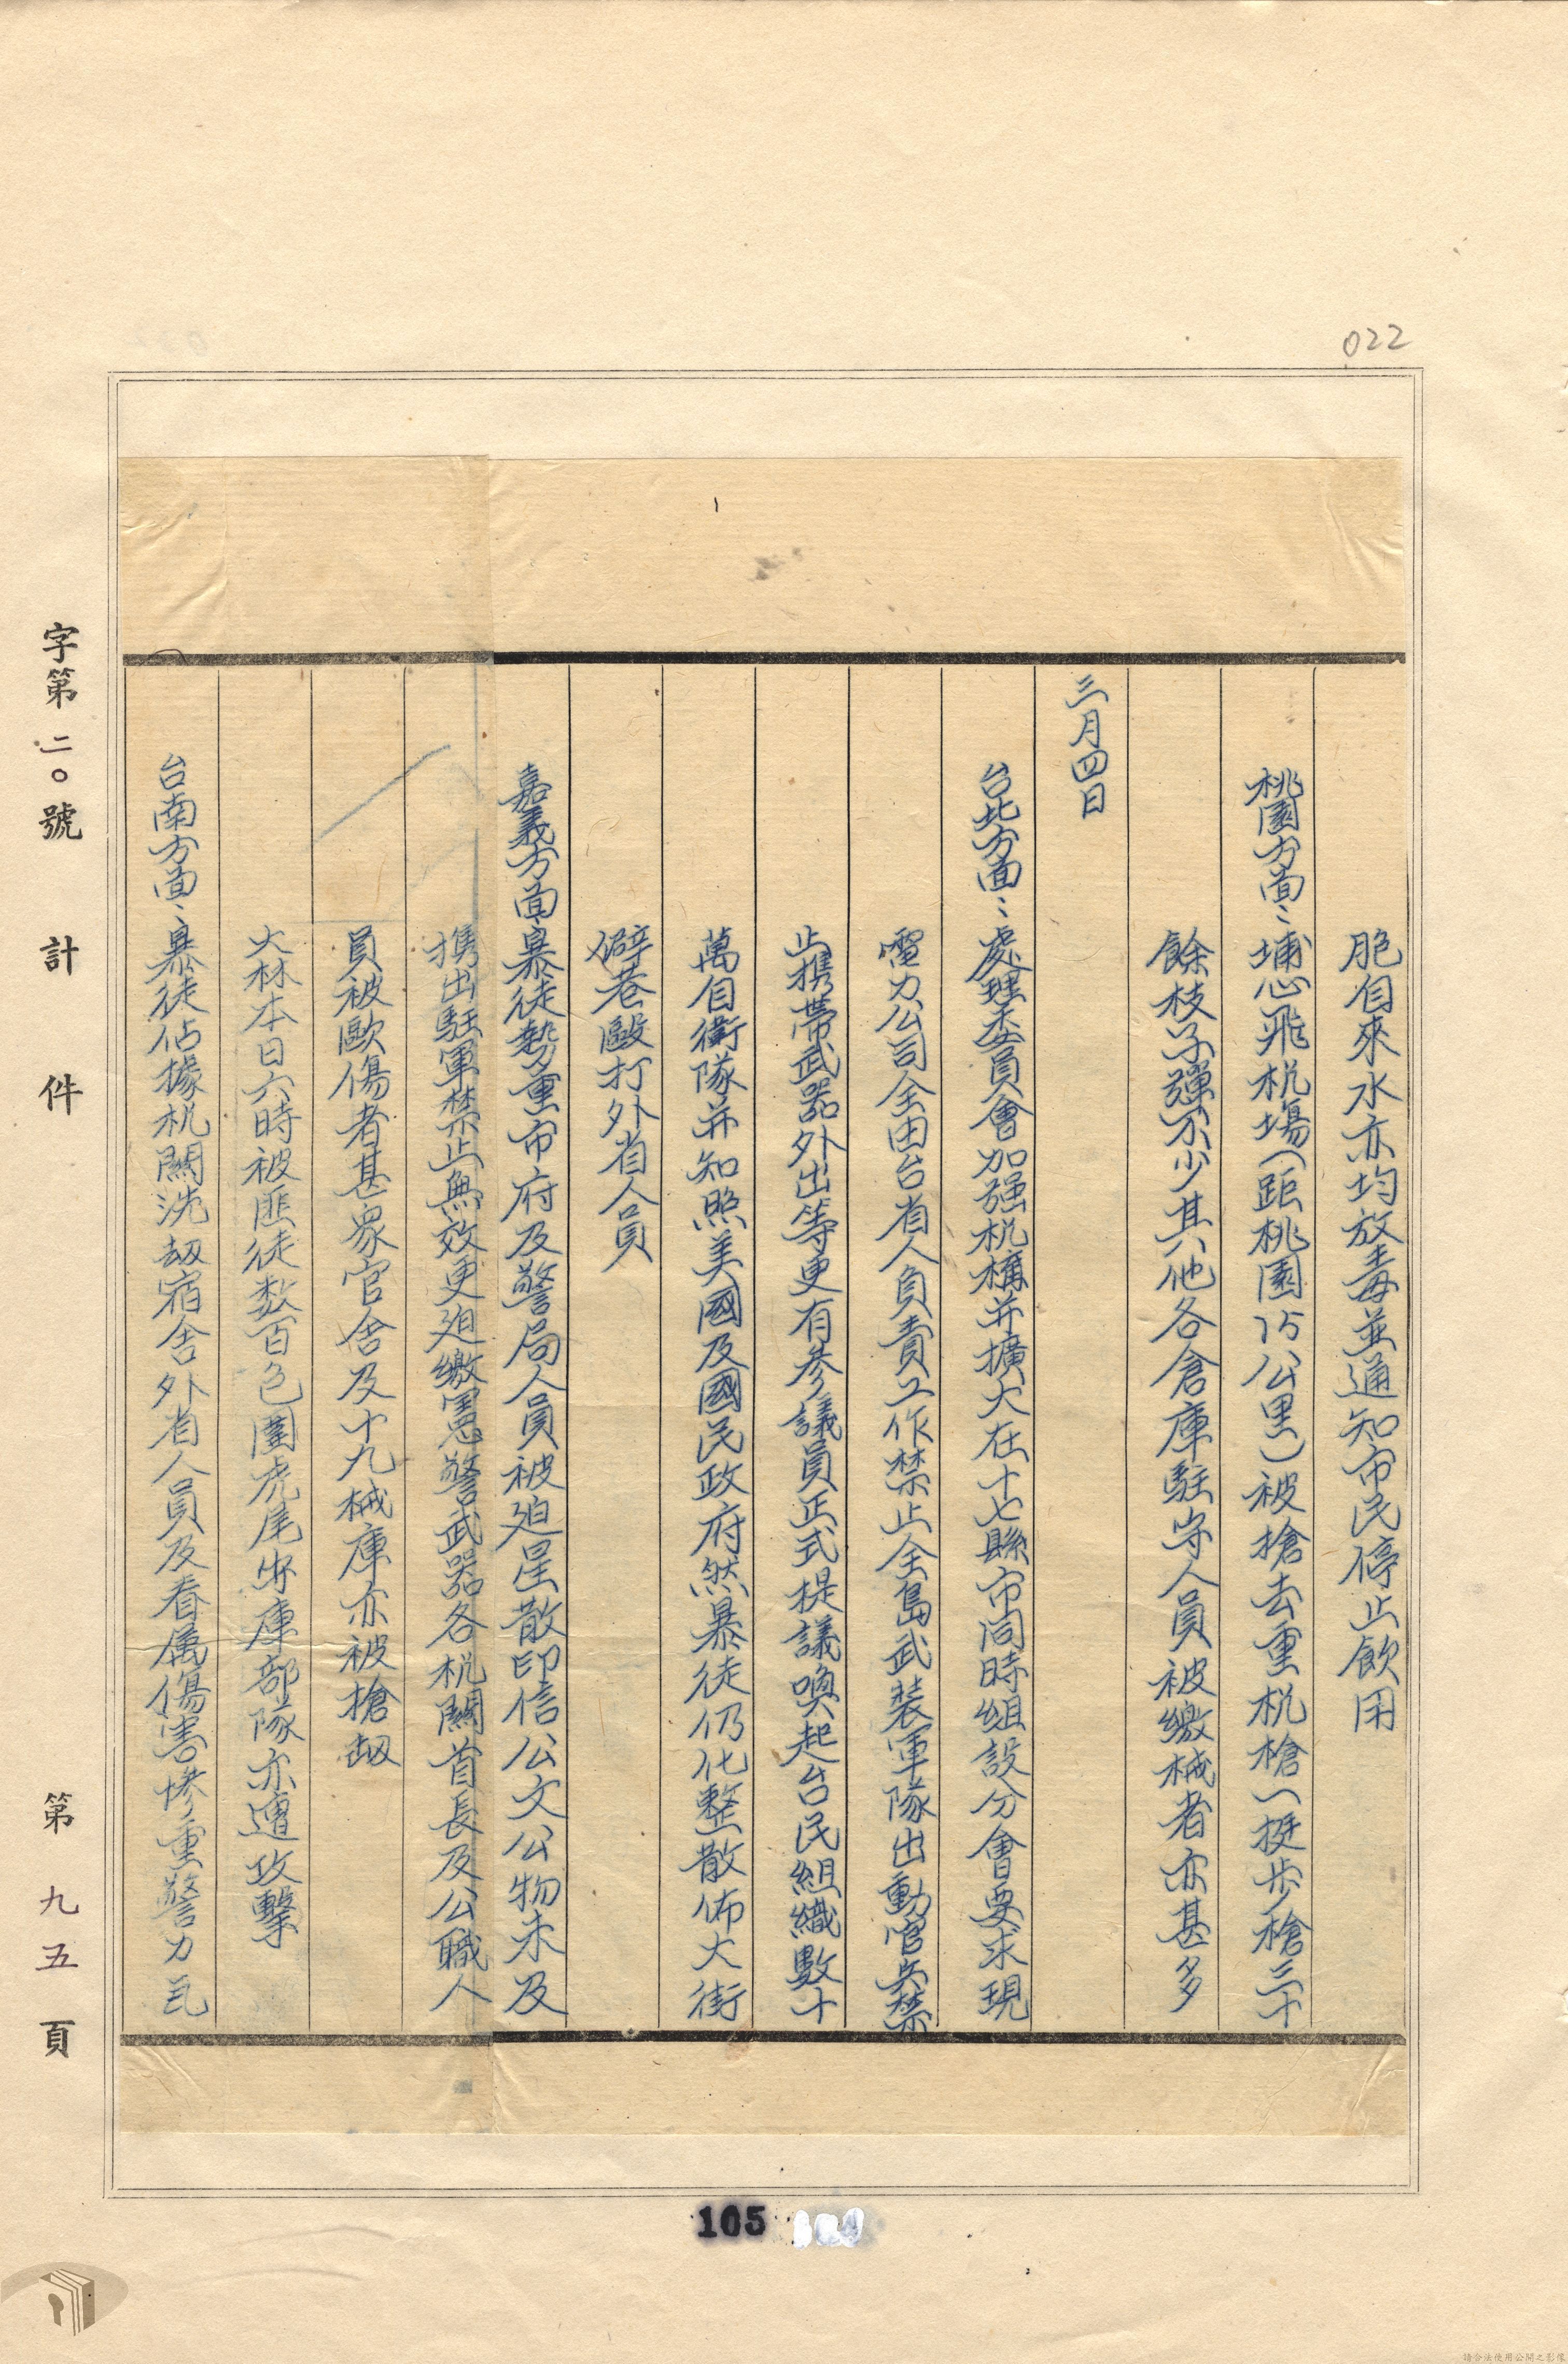 022
胞自來水亦均放毒並通知市民停止飲用
桃園方面：埔心飛机場（距桃園15公里）被搶去重机槍一挺步槍三十
餘枝子彈不少其他各倉庫駐守人員被繳械者亦甚多
三月四日
台北方面：處理委員會加强机構并擴大在十七縣市同時組設分會要求現
電力公司全由台省人負責工作禁止全島武裝軍隊出動官兵禁
止携帶武器外出等更有參議員正式提議喚起台民組織數十
萬自衛隊并知照美國及國民政府然暴徒仍化整散佈大街
僻巷毆打外省人員
嘉義方面：暴徒勢重市府及警局人員被廹星散印信公文公物未及
携出駐軍禁止無效更廹繳憲警武器各机關首長及公職人
員被歐傷者甚衆官舍及十九械庫亦被搶刧
大林本日六時被匪徒数百包圍虎尾庫部隊亦遭攻擊
台南方面：暴徒佔據机關洗刼宿舍外省人員及眷属傷害慘重警力瓦
字第二〇號 計 件 第九五頁
105
請合法使用公開之影像